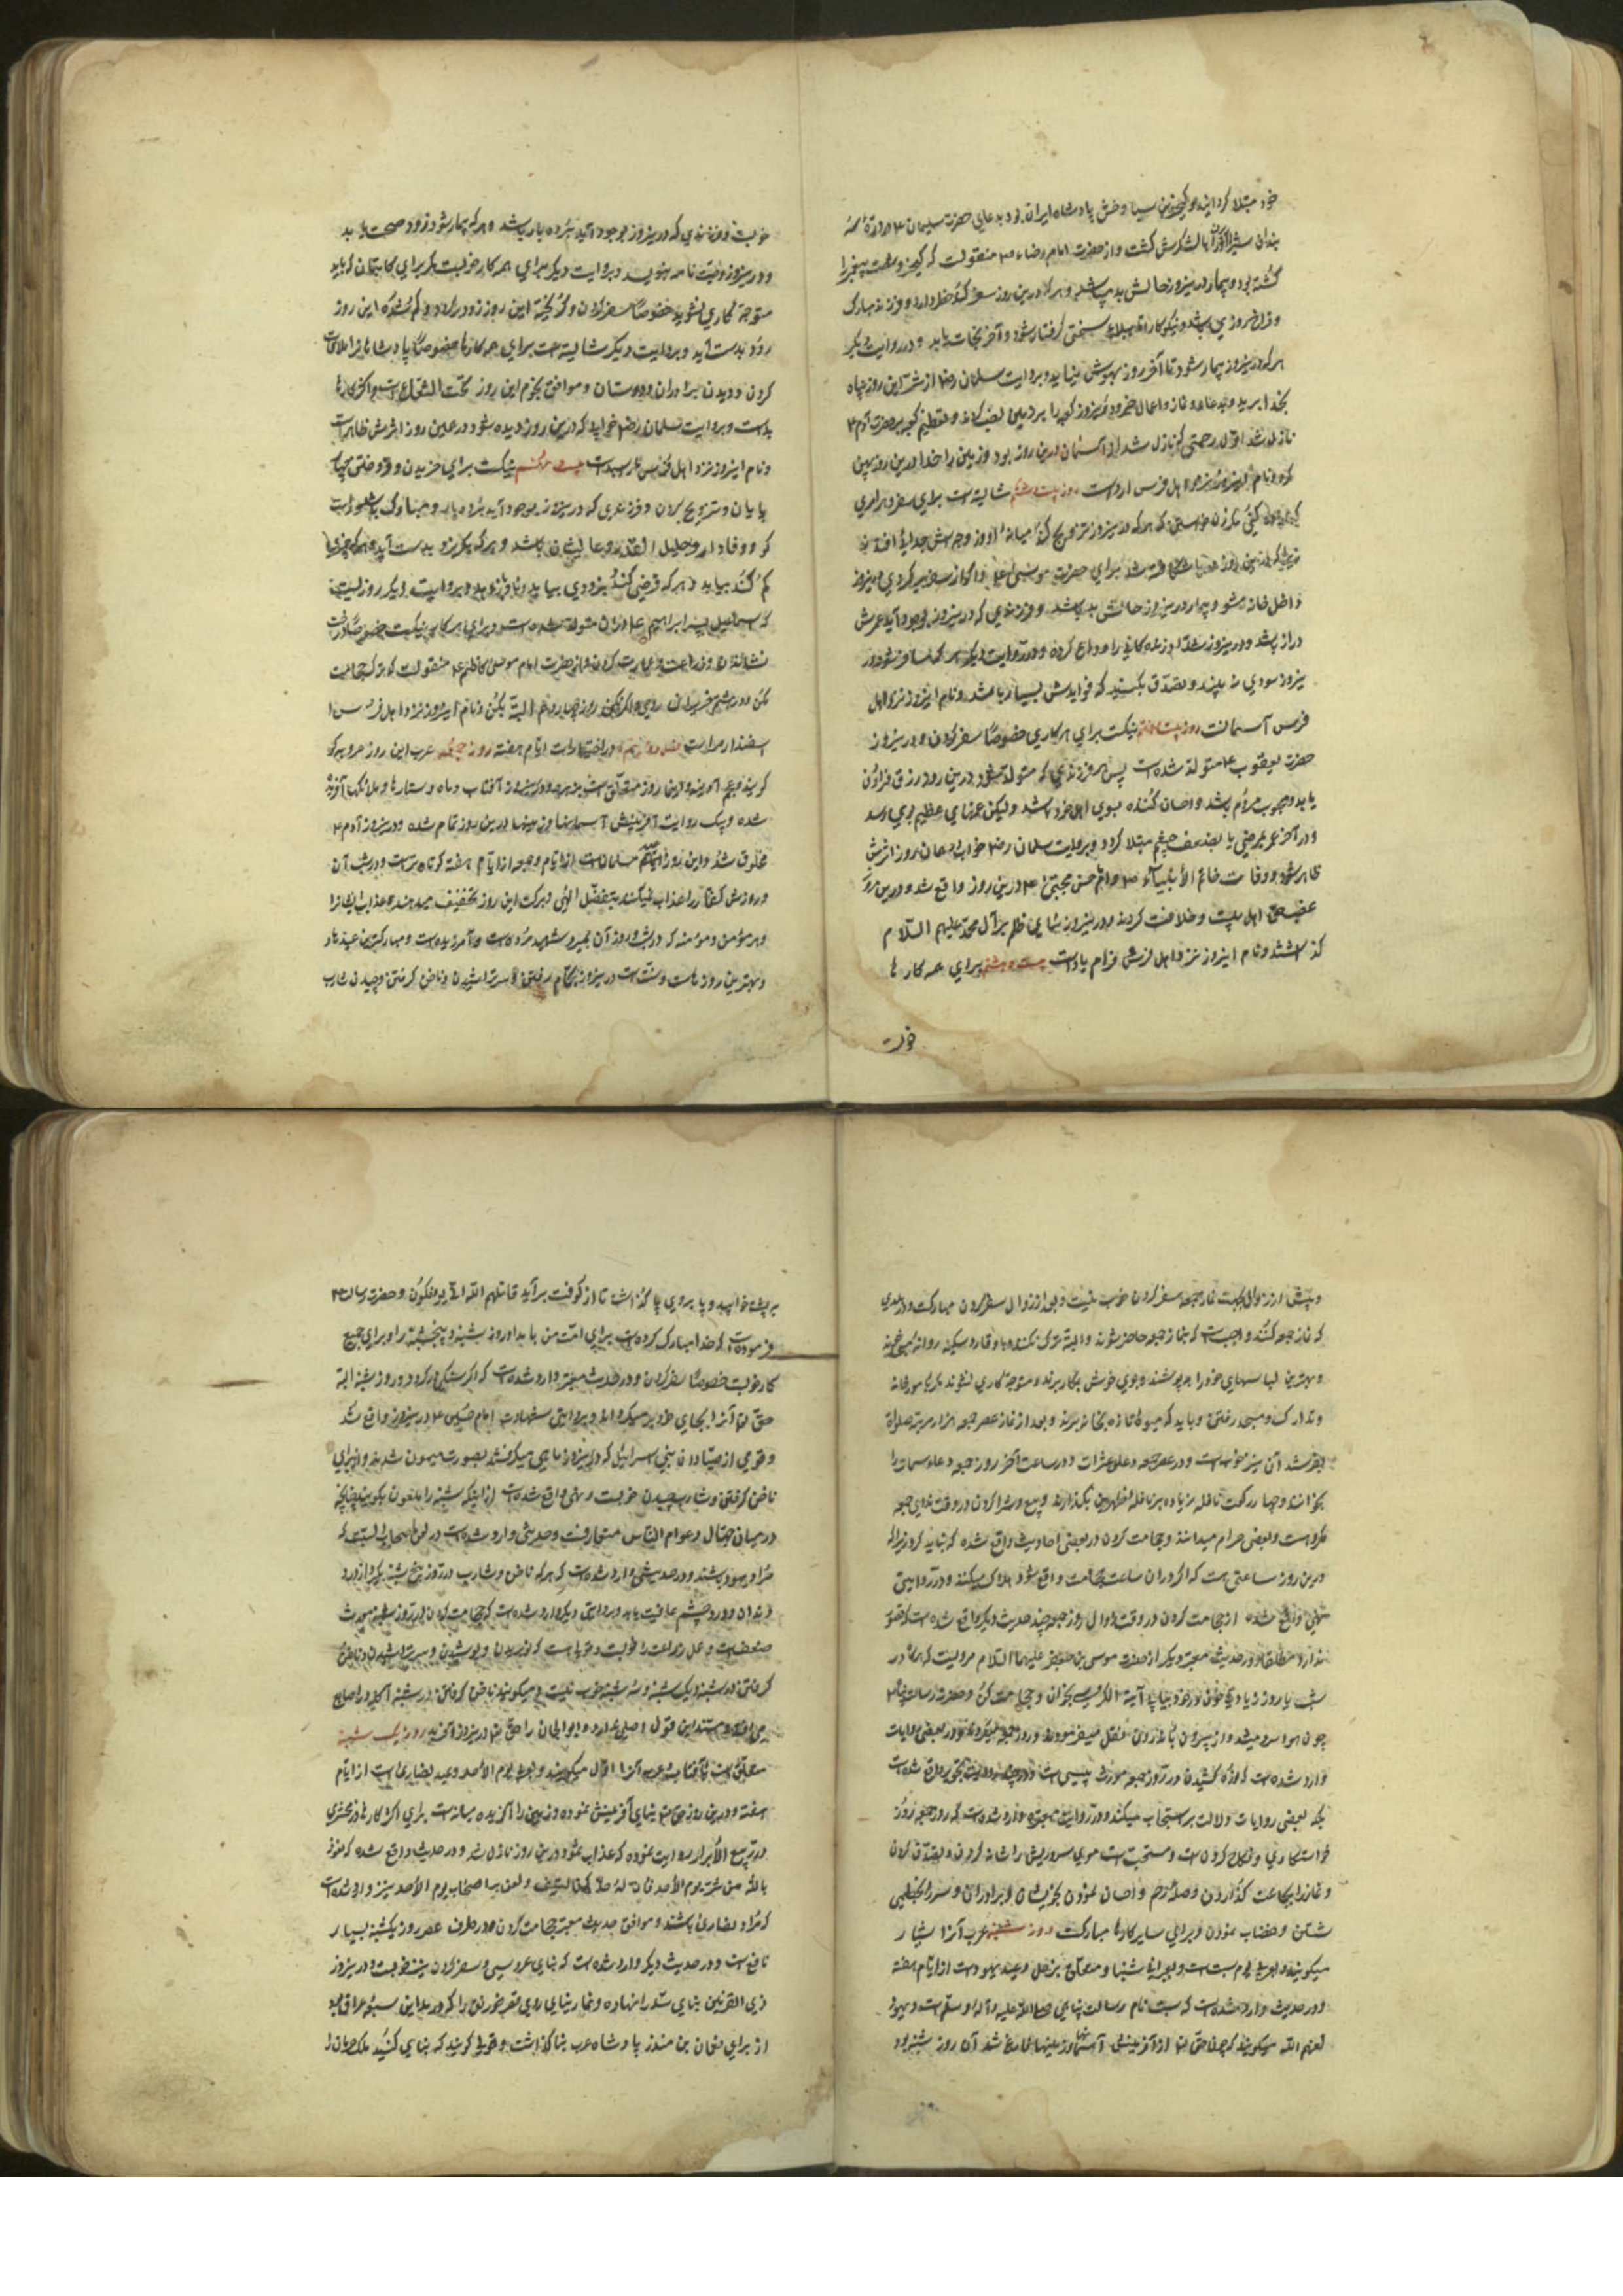 خود مبتلا کردانید و کیخسرو بن سیاوخش پادشاه ایران بود بدعای حضرت سلیمان ع در
بالشکرش کشت و از حضرت امام رضا ع منقولست که
کشته بود و بیمار درینروز حالش بد میباشد و هرکه درین روز سفر کند و فرزند مبارک
و فراخ روزی باشد و نیکوکار اما ببلاء سختی گرفتار شود و آخر نجات یابد و در روایت دیگر
هرکه درینروز بیمار شود تا آخر روز بهوش نیاید و بروایت سلمان رض از شر این روز پناه
بخدا برید و بدعا و نماز و اعمال خیر
نازل شد اول رحمتی که نازل شد از آسمان درین روز بود و زمین را خدا درین روز پهن
کرد و نام اینروز نزد اهل فرس ارداست روز بیست و ششم شایسته است برای سفر و هر امری
که هرکه درینروز تزویج کند میانه او و زوجه اش جدائی افتد
برای حضرت موسی ع و اگر از سفر برگردی اینروز
داخل خانه مشو و بیمار درینروز حالش بد باشد و فرزندی که درینروز بوجود آید عمرش
دراز باشد و در روایت دیگر هرکه مسافر شود در
ینروز سودی نه بیند و تصدق بکنید که فوایدش بسیار باشد و نام اینروز نزد اهل
فرس آسمانست روز بیست و هفتم نیکست برای هر کاری خصوصا سفر کردن و درینروز
حضرت یعقوب ع متولد شده است پس هر فرزندی که متولد شود درین روز رزق فراوان
یابد و محبوب مردم باشد و احسان کننده بسوی اهل خود باشد و لیکن غمهای عظیم بوی رسد
و در آخر عمر بمرضی یا بضعف چشم مبتلا گردد و بروایت سلمان رض خواب همان روز اثرش
ظاهر شود و وفات خاتم الأنبیاء ص و امام حسن مجتبی ع درین روز واقع شد و درین روز
غصب حق اهل بیت و خلافت کردند و درینروز بنای ظلم بر آل محمد علیهم السلام
گذاشتند و نام اینروز نزد اهل فرس فرام یاد است بیست و هشتم برای همه کارها
خوبست
خوبست و فرزندی که درینروز بوجود آید بردبار باشد و هرکه بیمار شود زود صحت یابد
و درینروز وصیت نامه ننویسد و بروایت دیگر برای همه کار خوبست مگر برای کاتبان که باید
متوجه کاری نشوند خصوصا سفر کردن و گریخته این روز زود برگردد و گم شده این روز
زود بدست آید و بروایت دیگر شایسته است برای همه کارها خصوصا پادشاهانرا ملاقات
کردن و دیدن برادران و دوستان و موافق نجوم این روز تحت الشعاع است و اکثر کارها
بد است و بروایت سلمان رض خوابیکه درین روز دیده شود در عین روز اثرش ظاهر است
و نام اینروز نزد اهل فرس مارسپند است بیست و نهم نیکست برای خریدن و فروختن چهار
پایان و تزویج کردن و فرزندی که درینروز بوجود آید بردبار و مبارک باشد و راست
گو و وفادار و جلیل القدر و عالیشان باشد و هرکه بگریزد بدست آید و هرکه چیزیرا
گم کند بیابد و هرکه قرضی کند بزودی باز دهد و بروایت دیگر روزیست
که اسماعیل بن ابراهیم علیهما السلام متولد شده است و برای هر کاری نیکست خصوصا درخت
نشاندن و زراعت و عمارت کردن و از حضرت امام موسی کاظم ع منقولست که ترک حجامت
مکن در هشتم حزیران رومی و اگر نکنی روز چهاردهم البته بکن و نام اینروز نزد اهل فرس
اسفندارمذ است در اختیارات ایام هفته روز جمعه عرب این روز را عروبه
گویند و عجم آدینه و این روز متعلق است بزهره و درینروز آفتاب و ماه و ستارها و ملائکها آفریده
شده و بیک روایت آفرینش آسمانها و زمینها درین روز تمام شده و درینروز آدم ع
مخلوق شد و این روز عید مسلمانانست
و روزش کفار را عذاب نمیکنند بتفضل الهی و ببرکت این روز تخفیف میدهند عذاب ایشانرا
و هر مؤمن و مؤمنه که در شب و روز آن بمیرد شهید مرده است و آمرزیده است و مبارکترین عیدها
و بهترین روزهاست و سنت است درینروز بحمام رفتن و سر تراشیدن و ناخن گرفتن و چیدن شارب
و پیش از زوال بجهت نماز جمعه سفر کردن خوب نیست و بعد از زوال سفر کردن مبارکست
که نماز جمعه کنند و اجبست که بنماز جمعه حاضر شوند و البته ترک نکنند و باوقار و سکینه روانه
و بهترین لباسهای خود را بپوشند و بوی خوش بکار برند و متوجه کاری نشوند مگر کار
و تدارک و مسجد رفتن و باید که میوهٔ تازه بخانه برند و بعد از نماز عصر جمعه هزار مرتبه صلواة
بفرستد آن نیز خوبست و در عصر جمعه دعای عشرات و در ساعت آخر روز جمعه دعاء سمات را
بخوانند و چهار رکعت نافله زیاده بر نافله ظهرین بگذارند و بیع و شرا کردن در وقت ندای جمعه
مکروهست و بعضی حرام میدانند و حجامت کردن در بعضی احادیث واقع شده که نباید کرد زیراکه
درین روز ساعتی هست که اگر در آن ساعت حجامت واقع شود هلاک میکند و در روایتی
نهی واقع شده از حجامت کردن در وقت زوال روز جمعه و چند حدیث دیگر واقع شده است که قصور
ندارد مطلقا و در حدیث معتبر دیگر از حضرت موسی بن جعفر علیهما السلام مرویست که هرگاه در
شب یا روز زیادتی خون بر تو زور آورد بیاید آیة الکرسی بخوان و حجامت کن و حضرت رسالت پناه ص
چون هوا سرد میشد و از بیرون باندرون نقل میفرمودند روز جمعه میکردند و در بعضی روایات
وارد شده است که نوره کشیدن در روز جمعه مورث پیسی است و در چند روایت تجویز واقع شده است
بلکه بعضی روایات دلالت بر استحباب میکند و در روایت معتبره وارد شده است که روز جمعه روز
خواستگاری و نکاح کردنست و مستحبست موی سر و ریش را شانه کردن و تصدق کردن
و نماز را بجماعت گذاردن و صله رحم و احسان نمودن بخویشان و برادران و سر را بخطمی
شستن و خضاب نمودن و برای سایر کارها مبارکست روز شنبه عرب آنرا شیار
میگویند و بعربی یوم سبت است و بعبرانی شنبا و متعلق بزحل و عید یهود است از ایام هفته
و در حدیث وارد شده است که سبت نام رسالت پناهی صلی الله علیه و آله و سلم است و یهود
لعنهم الله میگویند که چون حقتعالی از آفرینش آسمانها و زمینها فارغ شد آن روز شنبه بود
بر پشت خوابید و پا بروی پا گذاشت تا از کوفت برآید قاتلهم الله انی یؤفکون و حضرت رسالت
فرموده است که خدا مبارک کرده است برای امت من بامداد روز شنبه و پنجشنبه را و برای جمیع
کار خوبست خصوصا سفر کردن و در حدیث معتبر وارد شده است که اگر سنگی از کوه در روز شنبه البته
حق تعالی آنرا بجای خود بر میگرداند و بروایتی شهادت امام حسین ع درینروز واقع شد
و قومی از صیادان بنی اسرائیل که درینروز ماهی میگرفتند بصورت میمون شدند و از برای
ناخن گرفتن و شارب چیدن خوبست و نهی واقع شده است از اینکه شنبه را ملعون بگویند چنانچه
در میان جهال و عوام الناس متعارفست و حدیثی وارد شده است در لعن اصحاب السبت که
مراد یهود باشند و در حدیثی وارد شده است که هرکه ناخن و شارب در روز پنج شنبه بگیرد از درد
دندان و درد چشم عافیت یابد و بروایتی دیگر وارد شده است که حجامت کردن در روز شنبه مورث
ضعفست و عمل زراعت را خوبست و خوبهاست که نو بریدن و پوشیدن و سر تراشیدن و ناخن
گرفتن در شنبه و یکشنبه و سه شنبه خوب نیست و میگویند ناخن گرفتن در شنبه آکله در اصابع
می افتد و مستند این قول اصلی ندارد روز یک شنبه
متعلق است بآفتاب و عرب آنرا اول میگویند و بعربی یوم الأحد و عید نصاری است از ایام
هفته و درین روز حقتعالی بنای آفرینش نموده و زمین را آفریده میانه است برای اکثر کارها زمخشری
در ربیع الأبرار روایت نموده که عذاب ثمود درین روز نازل شد و در حدیث واقع شده که نعوذ
بالله من شر یوم الأحد فان له حدا کحد السیف و لعن بر اصحاب یوم الأحد نیز وارد شده است
که مراد نصاری باشند و موافق حدیث معتبر حجامت کردن در طرف عصر روز یکشنبه بسیار
نافعست و در حدیث دیگر وارد شده است که بنای عروسی و سفر کردن نیز خوبست و درینروز
ذی القرنین بنای سد را نهاده و نعمان بنای قصر خورنق را که در بلاد این سبزه عراق بود
از برای نعمان بن منذر پادشاه عرب بنا گذاشت و قومی گویند که بنای گنبد ملک